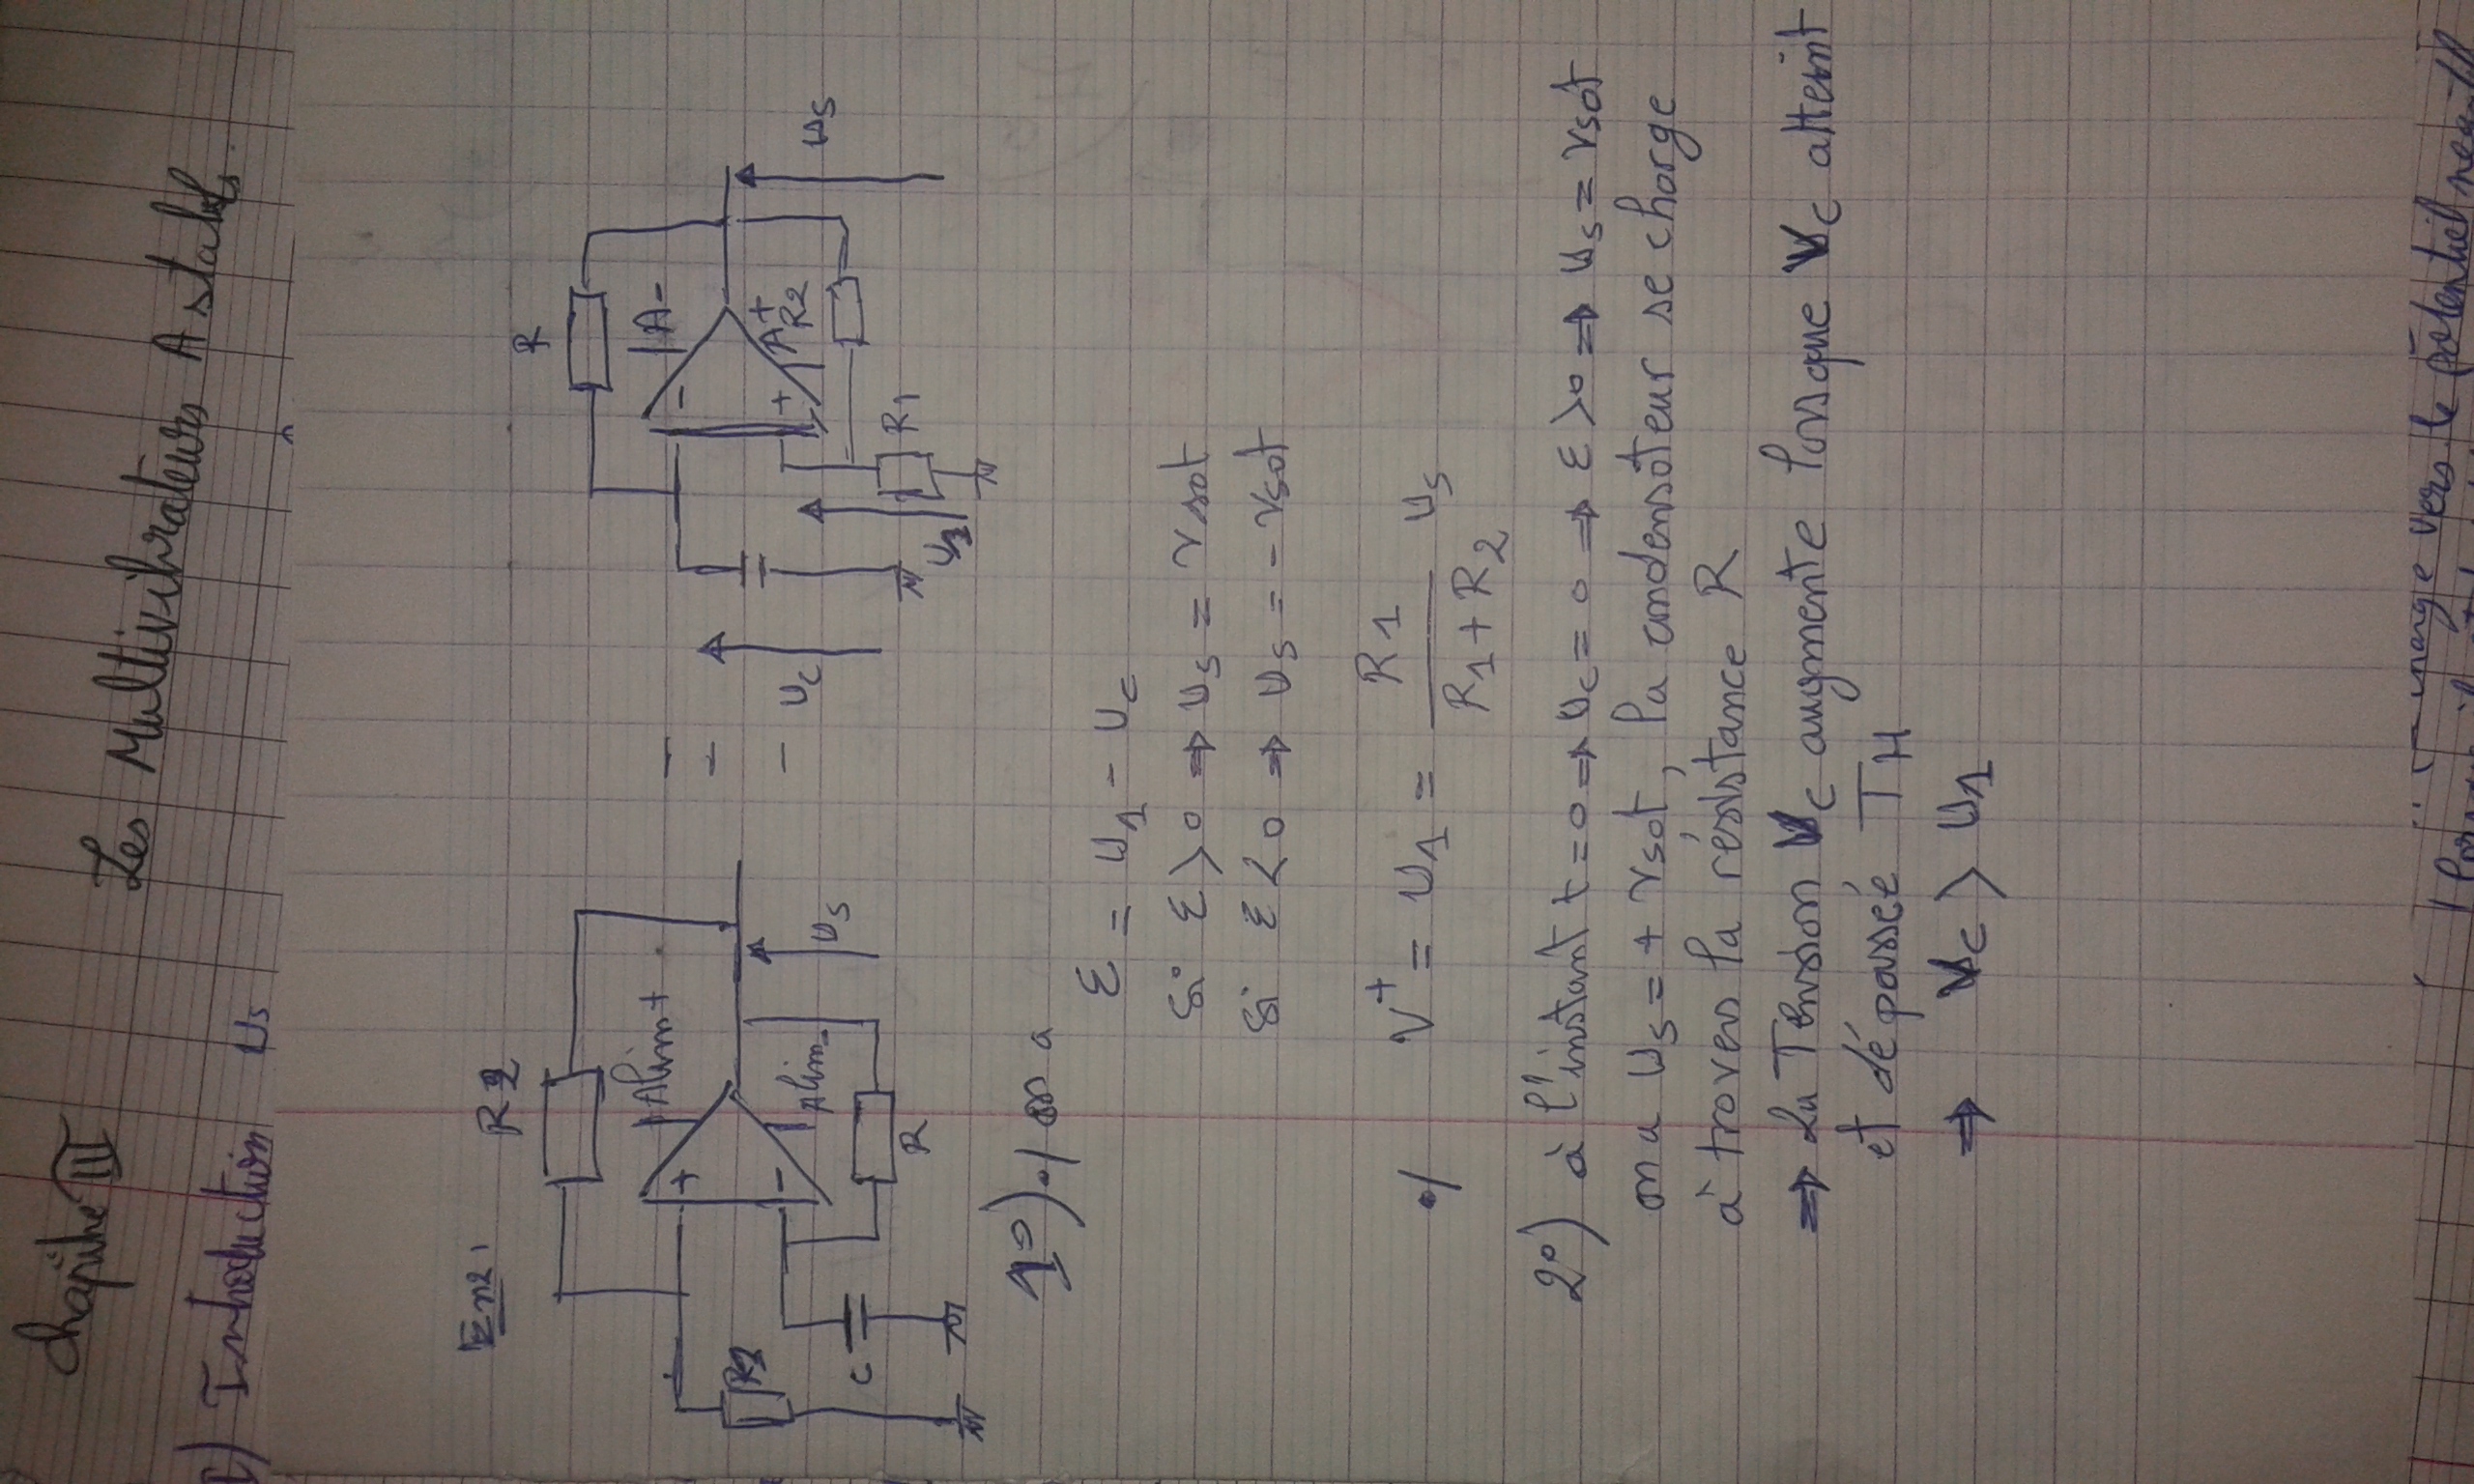 Chapitre III
Les Multivibrateurs Astables
I) Introduction Us
R2
Alim+
R1
+
-
Alim-
C
R
Us
R
A-
-
+
A+
R2
Uc
Us
R1
U1
1°) •/ on a
ε = U1 - Uc
Si ε > 0 ⇒ Us = Vsat
Si ε < 0 ⇒ Us = - Vsat
•/ V+ = U1 = R1 / (R1 + R2) Us
2°) à l'instant t = 0 ⇒ Uc = 0 ⇒ ε > 0 ⇒ Us = Vsat
on a Us = + Vsat, la condensateur se charge
à travers la résistance R
⇒ La Tension Vc augmente lorsque Vc atteint
et dépassée TH
⇒ Vc > U1
charge vers le potentiel négatif